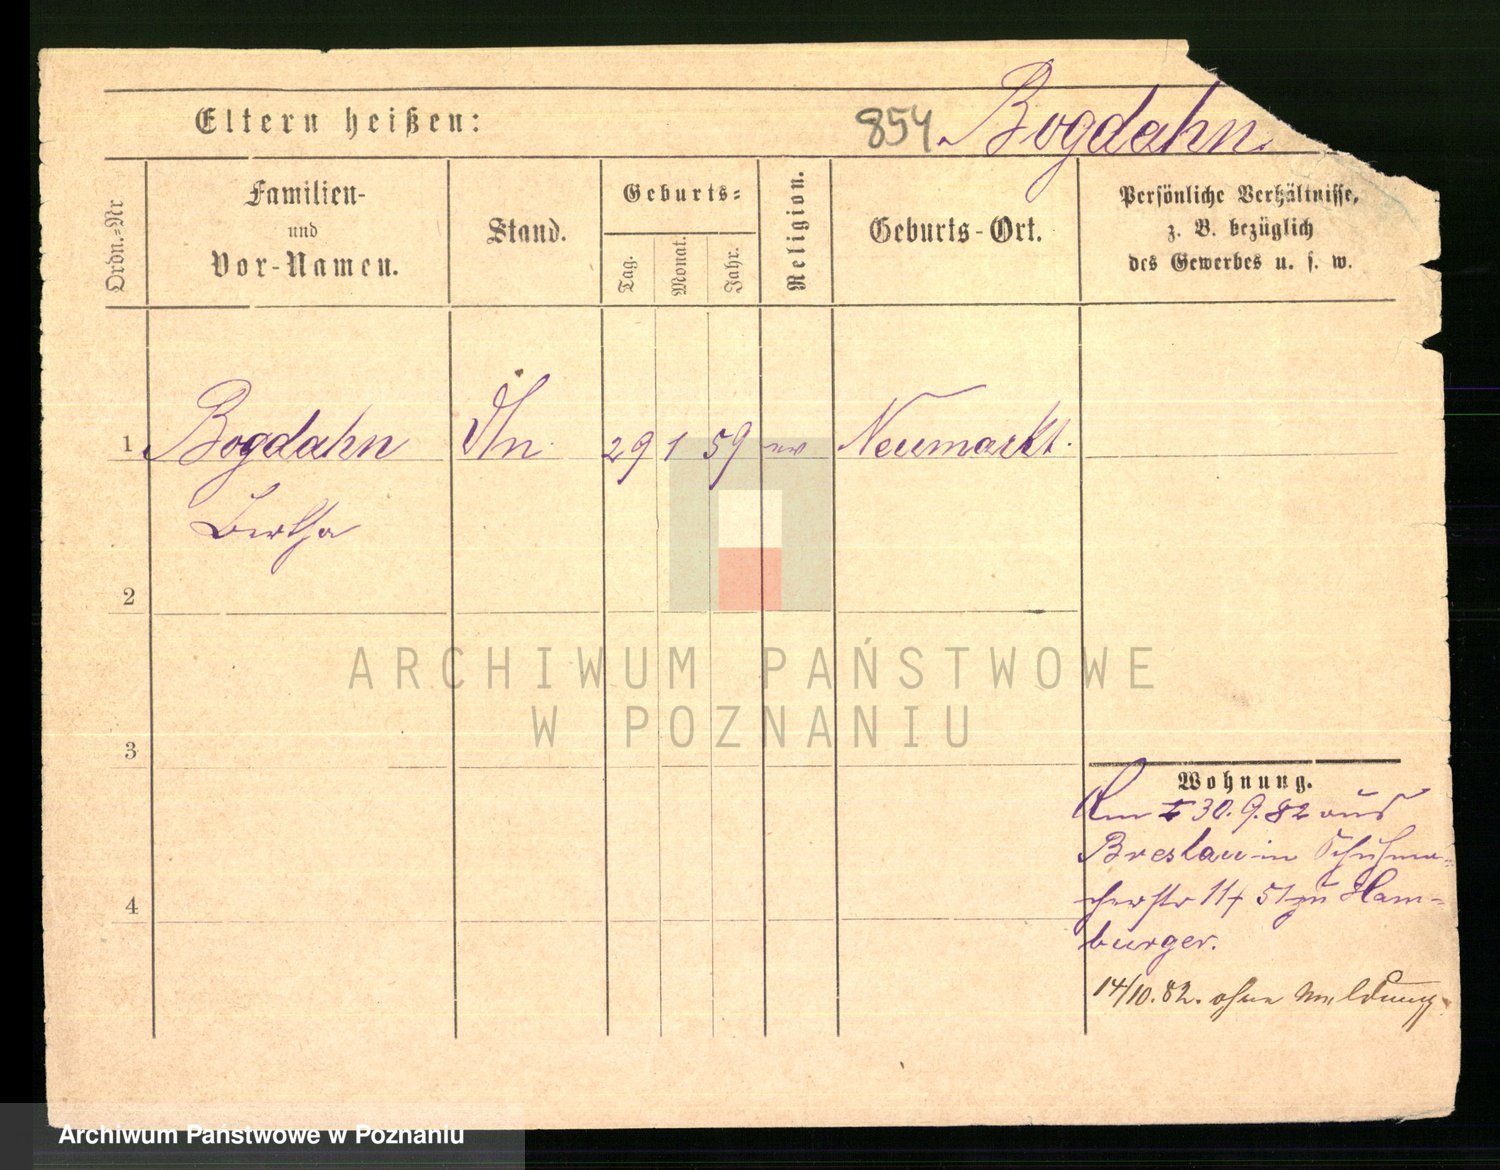 Eltern heißen:
854 Bogdahn
Ordn.-Nr
Familien-
und
Vor-Namen.
Stand.
Geburts-
Tag.
Monat.
Jahr.
Religion.
Geburts-Ort.
Persönliche Verhältnisse,
z. B. bezüglich
des Gewerbes u. s. w.
1 Bogdahn 29 1 59 ev Neumarkt.
Bertha
2
3
4
Wohnung.
30.9.82 aus
Breslau in Schuhma-
cherstr 11 zu Ham-
burger.
14/10.82. ohne Meldung.
ARCHIWUM PAŃSTWOWE
W POZNANIU
Archiwum Państwowe w Poznaniu